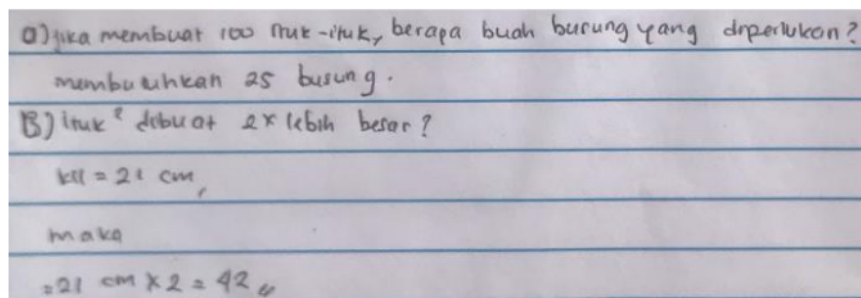 a) jika membuat 100 ituk-ituk, berapa buah burung yang diperlukan?
membutuhkan 25 busung.
B) ituk² dibuat 2x lebih besar?
kll = 21 cm,
maka
= 21 cm x 2 = 42,,